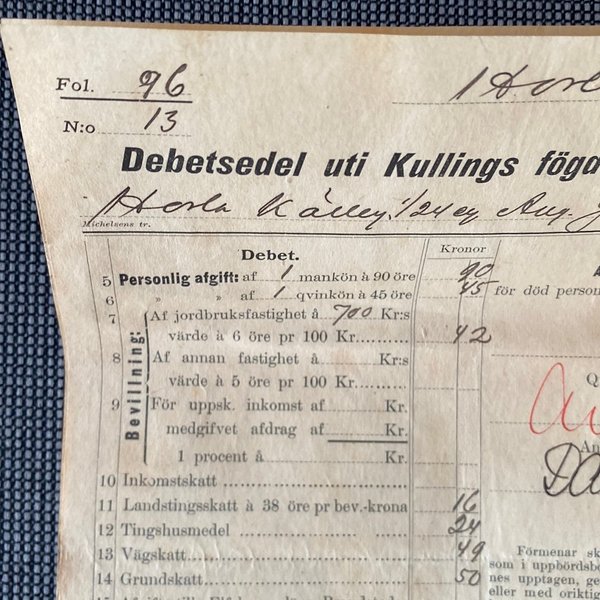 Fol. 96
N:o 13
Debetsedel uti Kullings
Michelsens tr.
Debet.
Kronor
5 Personlig afgift: af 1 mankön à 90 öre 90
6 » » af 1 qvinkön à 45 öre 45
för död
7 Af jordbruksfastighet à 700 Kr:s
värde à 6 öre pr 100 Kr. 42
8 Af annan fastighet à Kr:s
värde à 5 öre pr 100 Kr.
Bevillning:
9 För uppsk. inkomst af Kr.
medgifvet afdrag af Kr.
1 procent à Kr.
10 Inkomstskatt
11 Landstingsskatt à 38 öre pr bev.-krona 16
12 Tingshusmedel 24
13 Vägskatt 49
14 Grundskatt 50
Förmenar
som i
nes upptagen,
eller med